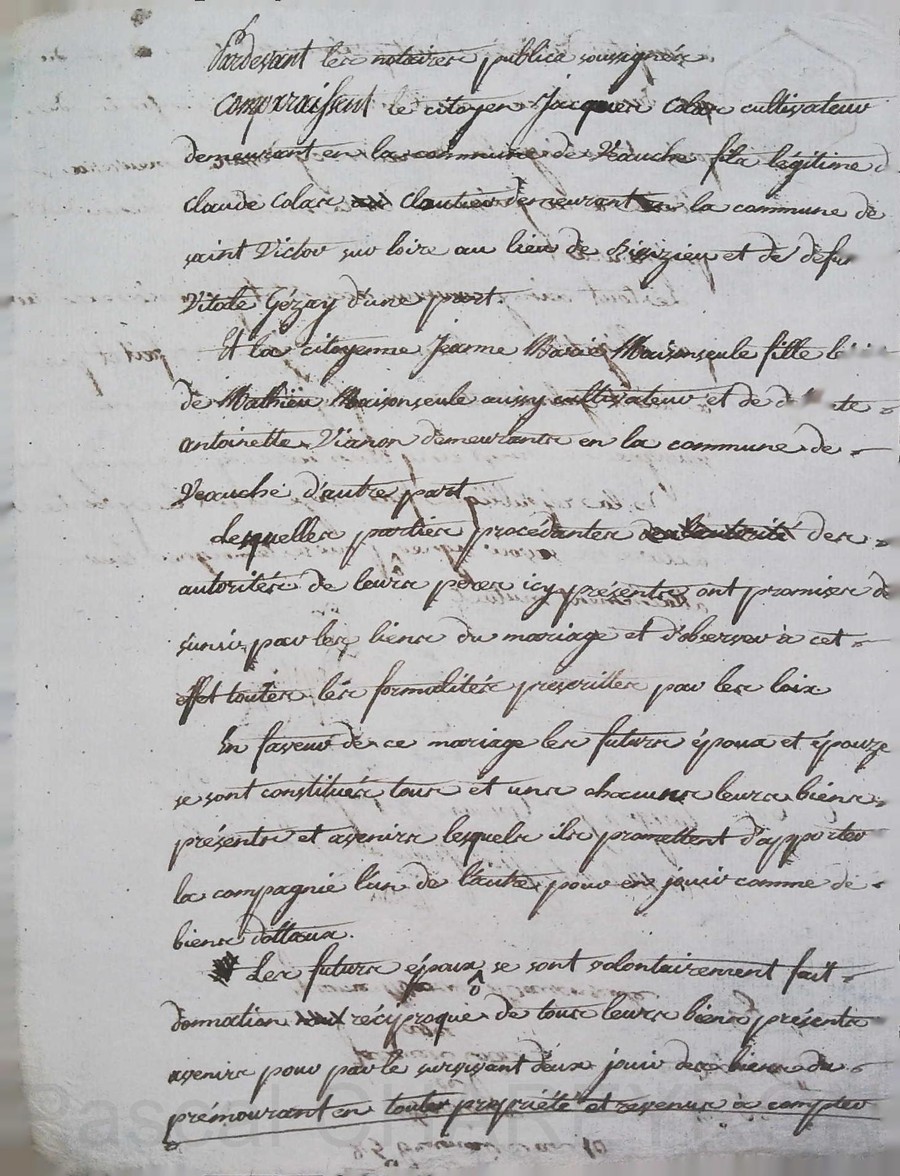 Pardevant les notaires publics soussignés
Comparaissent le citoyen Jacques Colas cultivateur
demeurant en la commune de Veauche fils légitime d
Claude Colas cloutier demeurant la commune de
saint Victor sur loire au lieu de et de défu
Vitale Gézay d'une part.
Et la citoyenne Jeanne Marie Maisonseule fille lé
de Mathieu Maisonseule aussy cultivateur et de d te
antoinette Vianon demeurants en la commune de
Veauche d'autre part
Lesquelles parties procédantes de l'autorité des
autorités de leurs peres icy présents ont promises de
s'unir par les liens du mariage et d'observer à cet
effet toutes les formalités prescrittes par les loix
En faveur de ce mariage les futurs époux et épouze
se sont constitués tous et uns chacuns leurs biens
présents et avenirs lesquels ils promettent d'apporter
la compagnie l'un de l'autre pour en jouir comme de
biens dottaux.
Les futurs époux se sont volontairement fait
donnation réciproque de tous leurs biens présents
avenirs pour par le survivant d'eux jouir des biens du
prémourant en toutes propriété et revenus à compter